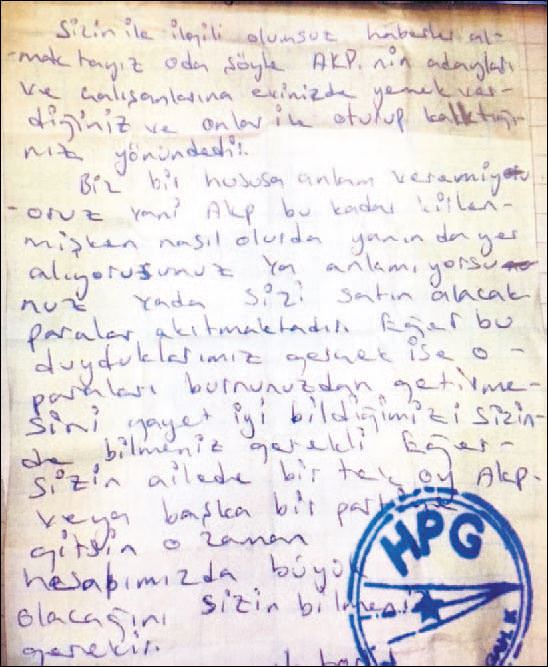 Sizin ile ilgili olumsuz haberler al-
-maktayız oda şöyle AKP.nin adayları
ve çalışanlarına evinizde yemek ver-
diğiniz ve onlar ile oturup kalktığı-
nız yönündedir.
Biz bir hususa anlam veremiy
-oruz yani Akp bu kadar kirlen-
mişken nasıl olurda yanında yer
alıyorusunuz ya anlamıyorsu
nuz yada sizi satın alacak
paralar akıtmaktadır. Eğer bu
duyduklarımız gerçek ise o-
paraları burnunuzdan getirme-
sini gayet iyi bildiğimizi sizin-
de bilmeniz gerekli Eğer-
sizin ailede bir tek oy Akp-
veya başka bir
gitsin o zaman
hesabımızda büyük
olacağını sizin
gerekir.
HPG